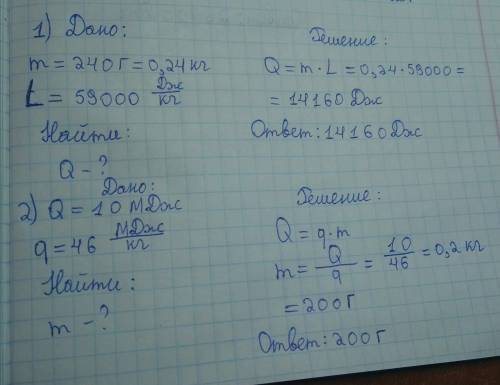 1) Дано:
m = 240 г = 0,24 кг
L = 59000 Дж/кг
Найти:
Q - ?
Решение:
Q = m · L = 0,24 · 59000 =
= 14160 Дж
Ответ: 14160 Дж
Дано:
2) Q = 10 МДж
q = 46 МДж/кг
Найти:
m - ?
Решение:
Q = q · m
m = Q/q = 10/46 = 0,2 кг
= 200 г
Ответ: 200 г